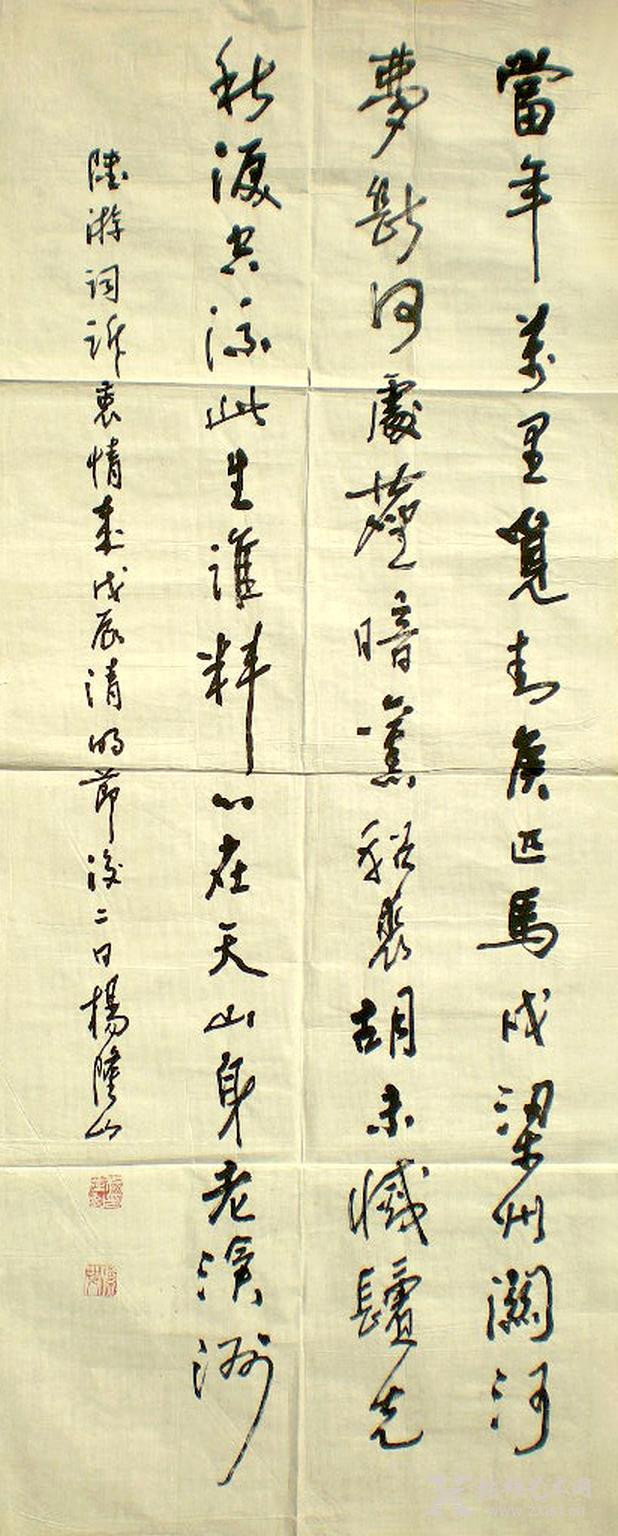 當年萬里覓封侯匹馬戍梁州關河
夢斷何處塵暗舊貂裘胡未滅鬢先
秋淚空流此生誰料心在天山身老滄洲
陸游詞訴衷情戊辰清明節後二日楊隆山